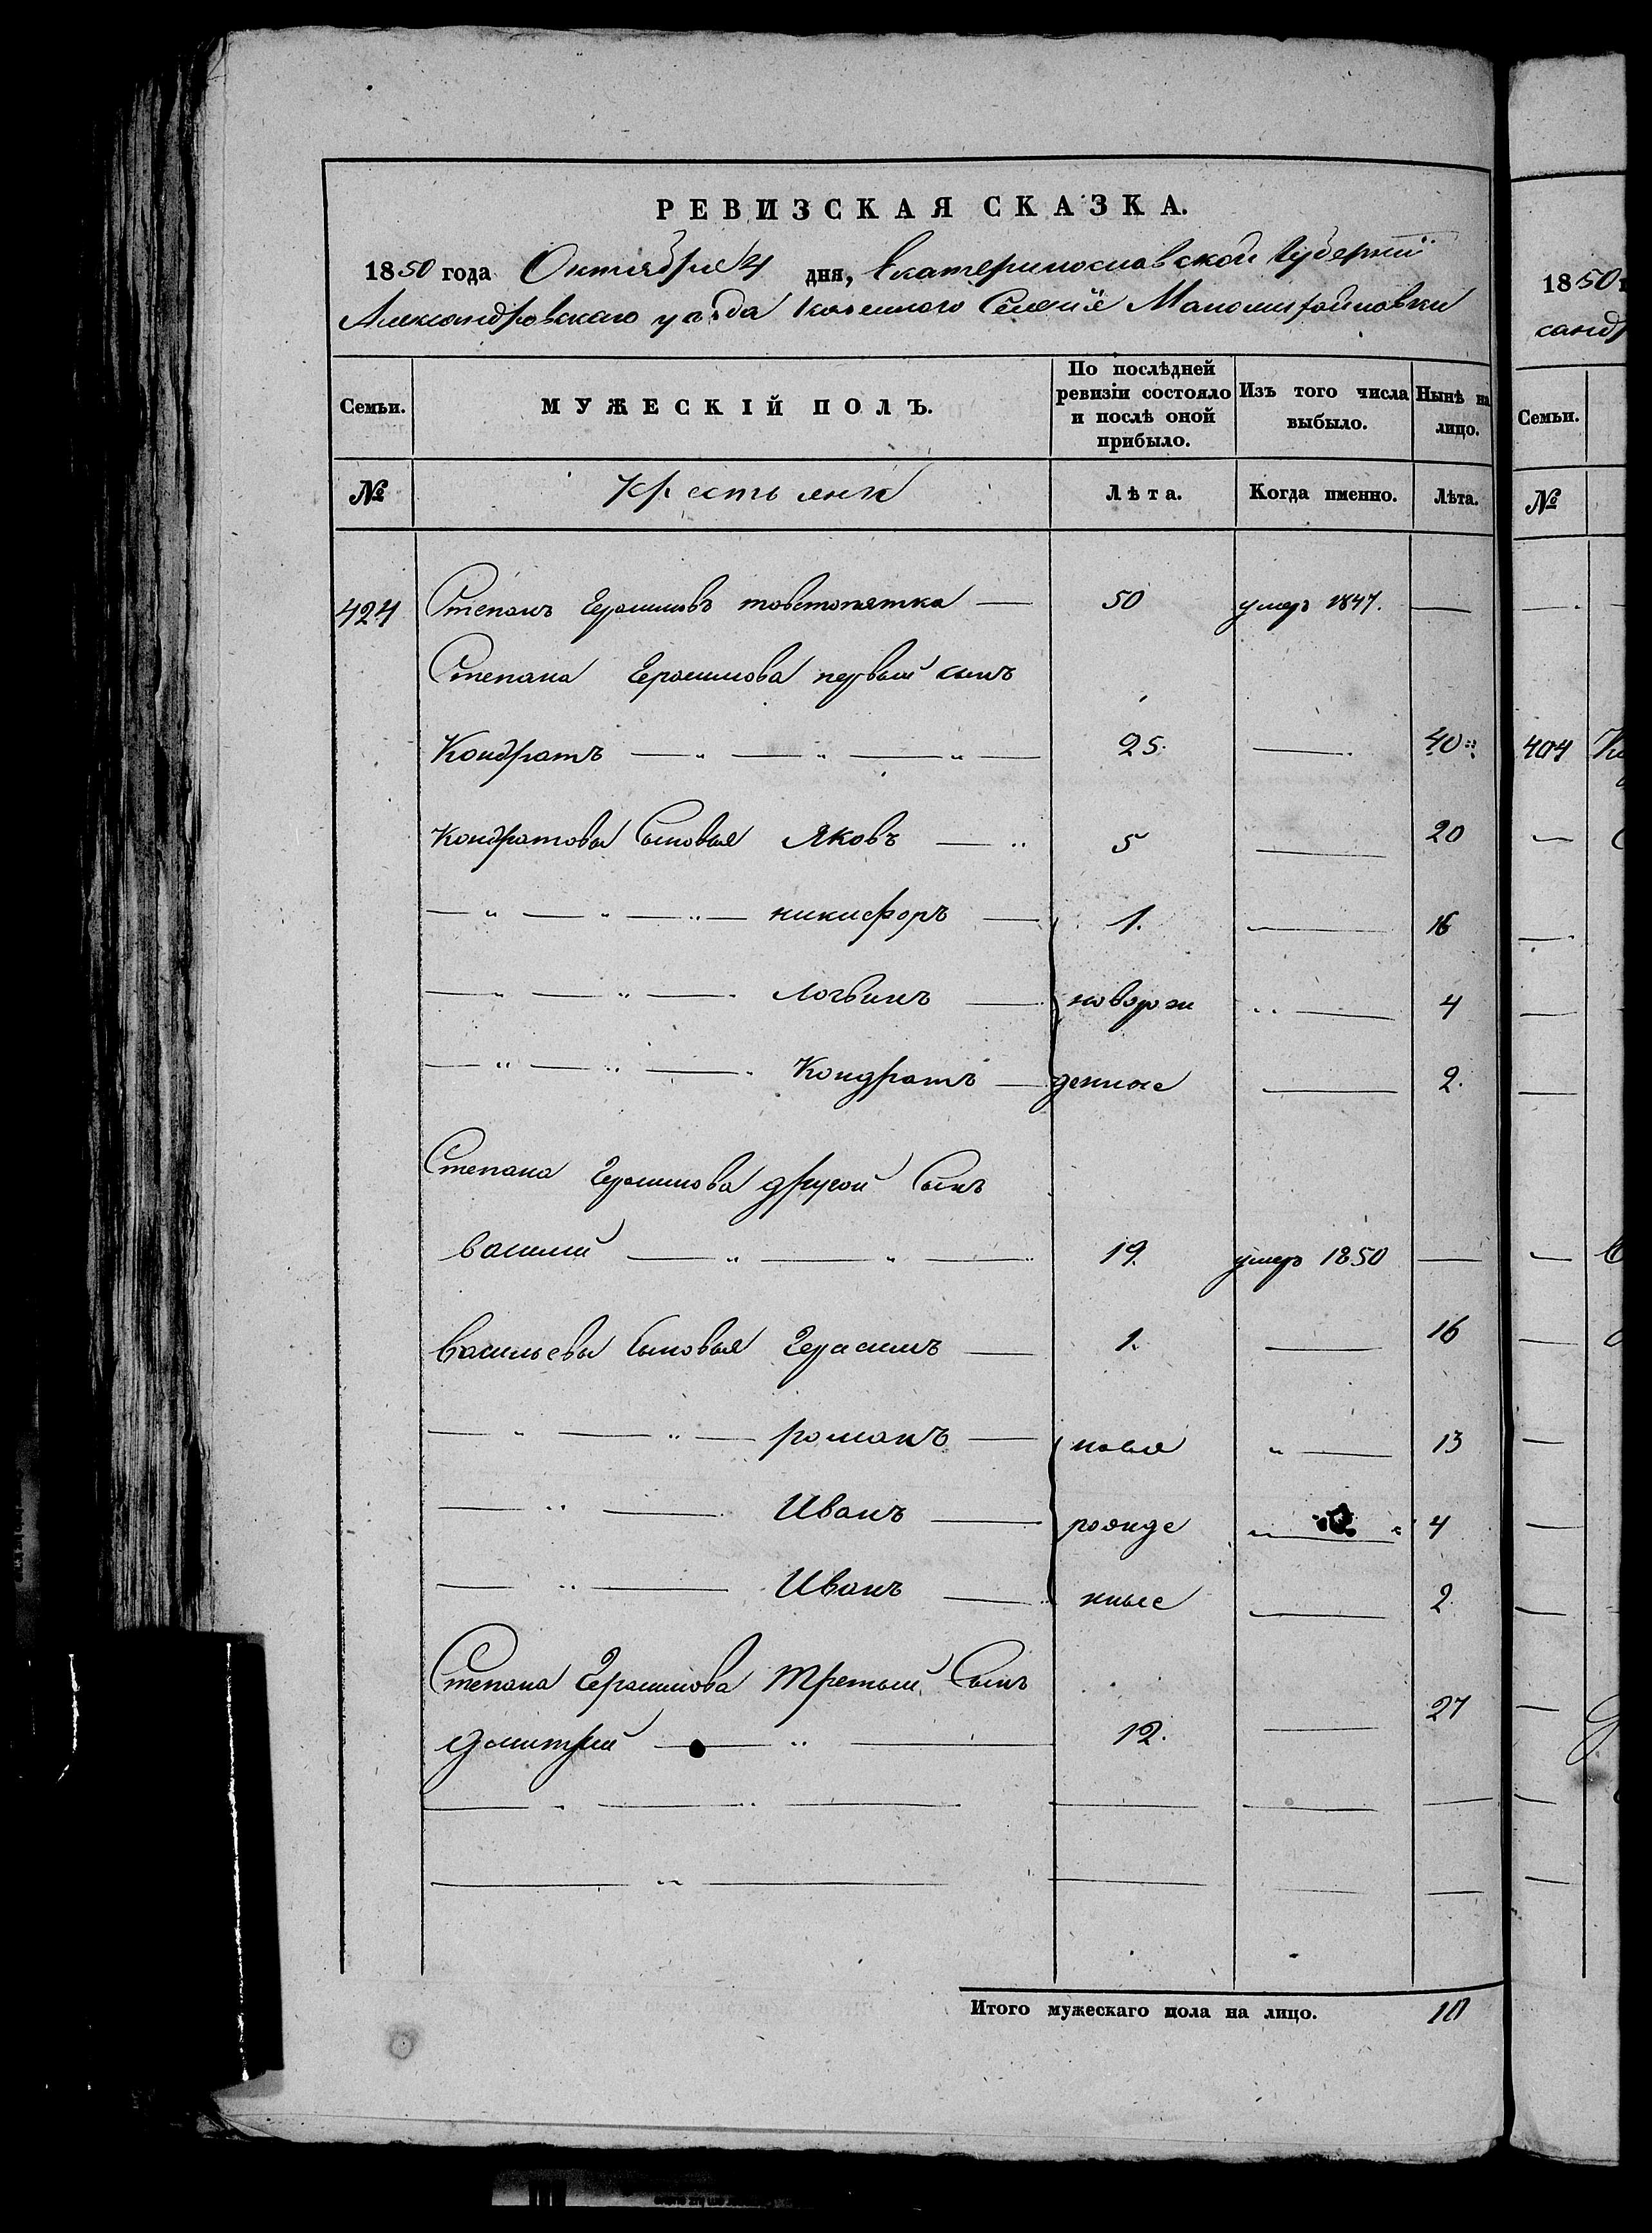 РЕВИЗСКАЯ СКАЗКА.
1850 года Октября 4 дня, Екатеринославской Губерніи
Александровскаго уѣзда Казенного Селенія Маломихайловки
Семьи. МУЖЕСКІЙ ПОЛЪ. По послѣдней ревизіи состояло и послѣ оной прибыло. Изъ того числа выбыло. Нынѣ на лицо.
№ Крестьяни Лѣта. Когда именно. Лѣта.
424 Степанъ Герасимовъ товстопятка — 50 умеръ 1847. —
Степана Герасимова первый сынъ
Кондратъ — " — " — " — 25. — 40
Кондратовы Сыновья Яковъ — 5 — 20
— " — " — " — никифоръ — 1. — 16
— " — " — Логвинъ — новорож — 4
— " — " — Кондратъ — денные — 2.
Степана Герасимова другой Сынъ
василий — " — " — 19. умеръ 1850 —
васильевы Сыновья Герасимъ — 1. — 16
— " — " — романъ — ново " — 13
— " — Иванъ — рожде " — 4
— " — Иванъ — нные — 2
Степана Герасимова Третьий Сынъ
дмитрий — " — 12. — 27
Итого мужескаго пола на лицо. 10
1850
санд
Семьи.
№
404